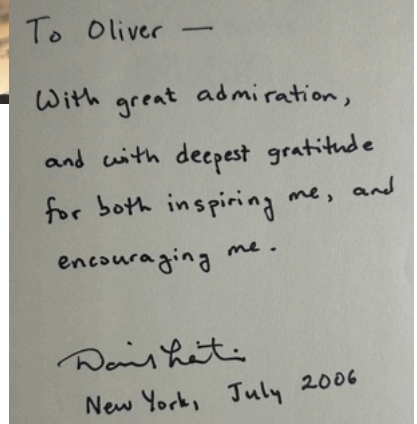 To Oliver —
With great admiration,
and with deepest gratitude
for both inspiring me, and
encouraging me.
New York, July 2006